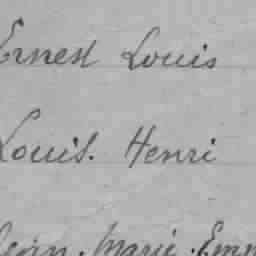 Ernest Louis
Louis. Henri
Jean. Marie. Emm